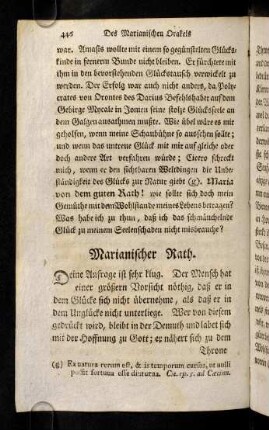 446 Des Marianischen Orakels
war. Amasis wollte mit einem so begünstigten Glücks-
kinde in fernerm Bunde nicht bleiben. Er fürchtete mit
ihm in den bevorstehenden Glückstausch verwickelt zu
werden. Der Erfolg war auch nicht anders, da Poly-
crates von Orontes des Darius Befehlshaber auf dem
Gebirge Mycale in Jonien seine stolze Glücksseele an
dem Galgen aushauchen mußte. Wie übel wäre es mir
geholfen, wenn meine Schaubühne so aussehen sollte;
und wenn das untreue Glück mit mir auf gleiche oder
doch andere Art verfahren würde; Cicero schreckt
mich, wenn er den sichtbaren Weltdingen die Unbe-
ständigkeit des Glücks zur Natur giebt (g). Maria
von dem guten Rath! wie sollte sich doch mein
Gemüthe mit dem Wohlstande meines Lebens betragen?
Was habe ich zu thun, daß ich das schmäuchelnde
Glück zu meinem Seelenschaden nicht misbrauche?
Marianischer Rath.
Deine Anfrage ist sehr klug. Der Mensch hat
einer größern Vorsicht nöthig, daß er in
dem Glücke sich nicht übernehme, als daß er in
dem Unglücke nicht unterliege. Wer von diesem
gedrückt wird, bleibt in der Demuth und labet sich
mit der Hoffnung zu Gott; er nähert sich zu dem
Throne
(g) Ex natura rerum est, & ex temporum, ut nulli
possit fortuna esse diuturna. Cic. ep. 5. ad